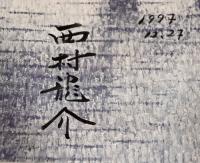 西村龍介
1997
12.27